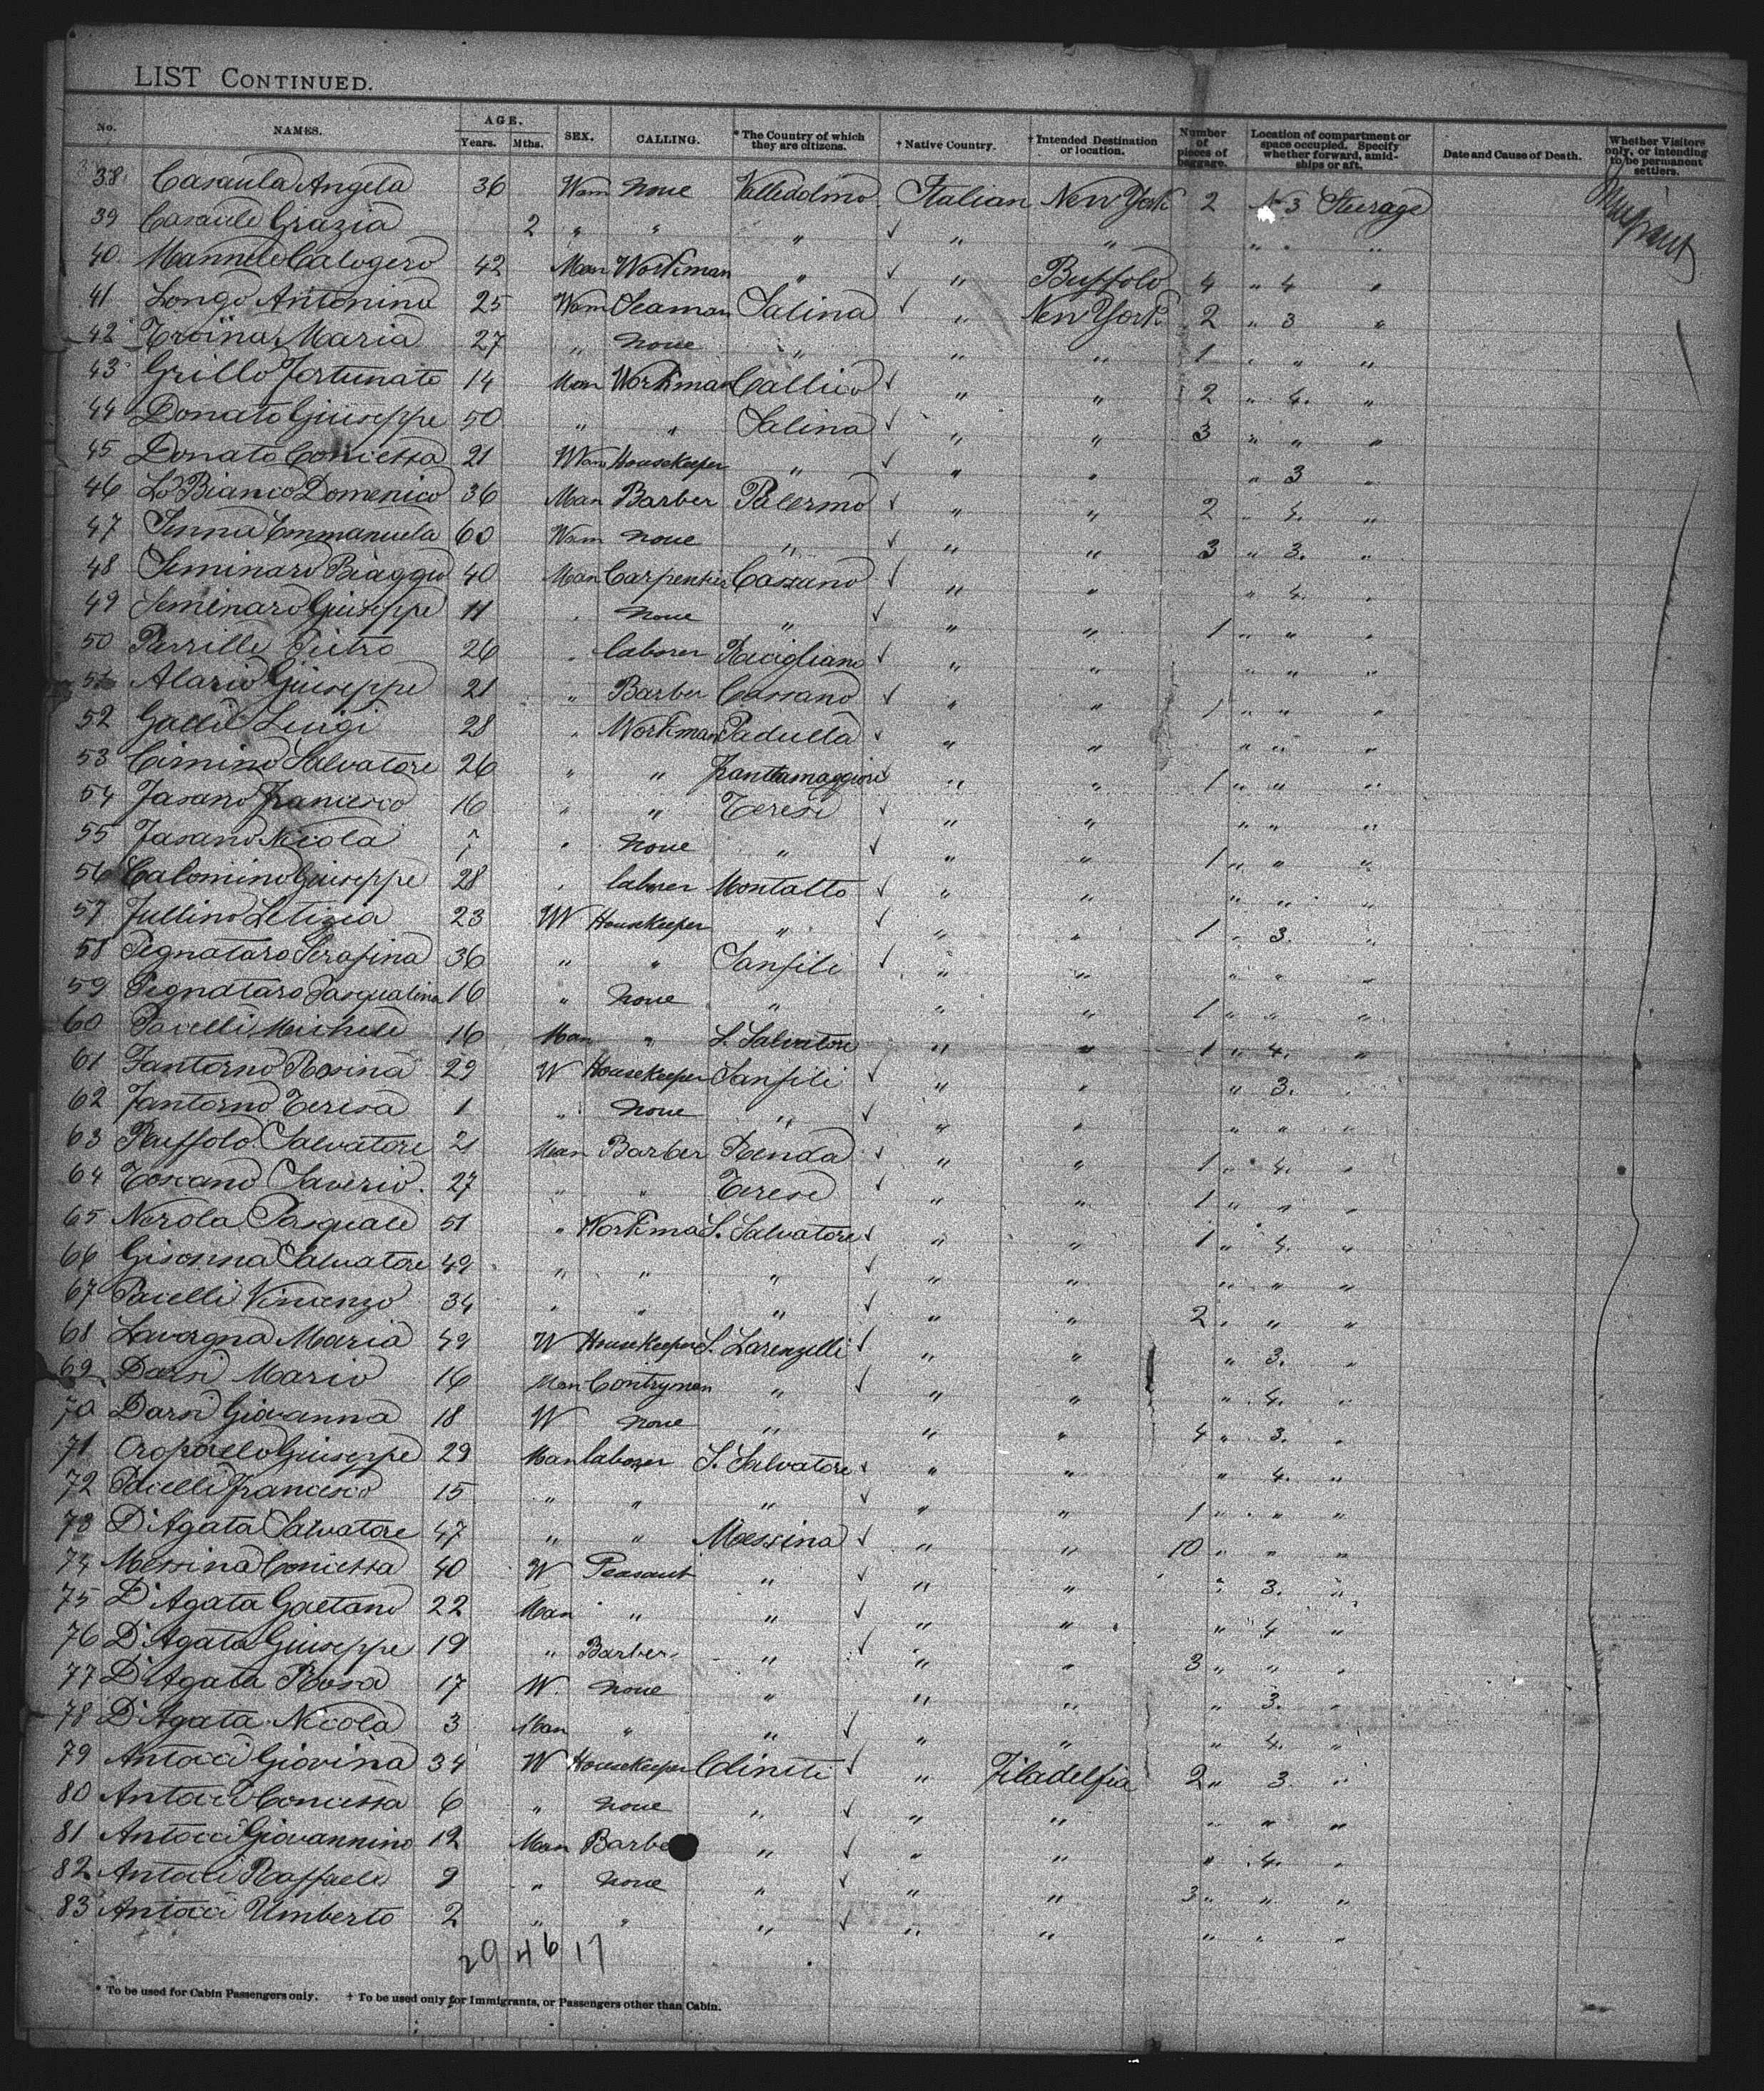 LIST CONTINUED.
No. NAMES. AGE. Years. Mths. SEX. CALLING. * The Country of which they are citizens. † Native Country. † Intended Destination or location. Number of pieces of baggage. Location of compartment or space occupied. Specify whether forward, amidships or aft. Date and Cause of Death. Whether Visitors only, or intending to be permanent settlers.
38 Casaula Angela 36 Wom none Valledolmo Italian New York 2 No 3 Steerage
39 Casaule Grazia 2 " " " ✓ " " " " "
40 Mannele Calogero 42 Man Workman " ✓ " Buffolo 4 " 4 "
41 Longo Antonina 25 Wom Seaman Salina ✓ " New York 2 " 3 "
42 Troina Maria 27 " none " " " 1 " " "
43 Grillo Fortunato 14 Man Workman Callico ✓ " " 2 " 4. "
44 Donato Giuseppe 50 " " Salina ✓ " " 3 " " "
45 Donato Concetta 21 Wom Housekeeper " ✓ " " " 3 "
46 Lo Bianco Domenico 36 Man Barber Palermo ✓ " " 2 " 4. "
47 Sinna Emmanuela 60 Wom none " ✓ " " 3 " 3. "
48 Seminaro Biaggio 40 Man Carpenter Cassano ✓ " " " 4. "
49 Seminaro Giuseppe 11 " none " ✓ " " 1 " " "
50 Parrille Pietro 26 " laborer ✓ " " " " "
51 Alario Giuseppe 21 " Barber Cassano ✓ " " 1 " " "
52 Luigi 28 " Workman Padulla ✓ " " " " "
53 Cimino Salvatore 26 " " Frantamaggiore ✓ " " 1 " " "
54 Fasano Francesco 16 " " Terese ✓ " " " " "
55 Fasano Nicola 7 " none " ✓ " " 1 " " "
56 Calomino Giuseppe 28 " laborer Montalto ✓ " " " " "
57 Fullino Letizia 23 W Housekeeper " ✓ " " 1 " 3. "
58 Pegnataro Serafina 36 " " Sanfili ✓ " " " " "
59 Pegnataro Pasqualina 16 " none " " " 1 " " "
60 Pacelli Michele 16 Man " S. Salvatore " " 1 " 4. "
61 Fantorno Rosina 29 W Housekeeper Sanfili ✓ " " " 3. "
62 Fantorno Teresa 1 " none " ✓ " " " " "
63 Ruffolo Salvatore 21 Man Barber Renda ✓ " " 1 " 4. "
64 Toscano Saverio. 27 " " Terese ✓ " " 1 " " "
65 Nerola Pasquale 51 " Workman S. Salvatore ✓ " " 1 " 4. "
66 Gisonna Salvatore 49 " " " ✓ " " " " "
67 Pacelli Vincenzo 34 " " " ✓ " " 2 " " "
68 Lavorgna Maria 49 W Housekeeper S. Larenzelli ✓ " " " 3. "
69 Darsi Mario 16 Man Contrymen " ✓ " " " 4. "
70 Darsi Giovanna 18 W none " " " 4 " 3. "
71 Giuseppe 29 Man laborer S. Salvatore ✓ " " " 4. "
72 Pacelli Francesco 15 " " " ✓ " " 1 " " "
73 D'Agata Salvatore 47 " " Messina ✓ " " 10 " " "
74 Messina Concetta 40 W Peasant " ✓ " " " 3. "
75 D'Agata Gaetano 22 Man " " ✓ " " " 4 "
76 D'Agata Giuseppe 19 " Barber " ✓ " " 3 " " "
77 D'Agata Rosa 17 W. none " " " " 3. "
78 D'Agata Nicola 3 Man " " ✓ " " " 4. "
79 Antacci Giovina 34 W Housekeeper ✓ " Filadelfia 2 " 3. "
80 Antacci Concetta 6 " none " ✓ " " " " "
81 Antacci Giovannino 12 Man Barbe " ✓ " " " 4. "
82 Antacci Raffaele 9 " none " ✓ " " 3 " " "
83 Antacci Umberto 2 " " " ✓ " " " " "
29 46 17
* To be used for Cabin Passengers only. † To be used only for Immigrants, or Passengers other than Cabin.